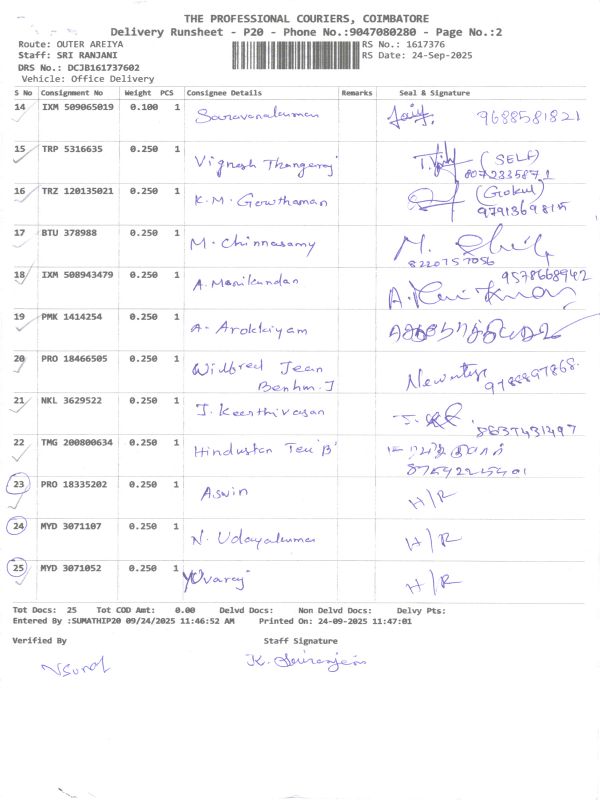 THE PROFESSIONAL COURIERS, COIMBATORE
Delivery Runsheet - P20 - Phone No.:9047080280 - Page No.:2
Route: OUTER AREIYA RS No.: 1617376
Staff: SRI RANJANI RS Date: 24-Sep-2025
DRS No.: DCJB161737602
Vehicle: Office Delivery
S No Consignment No Weight PCS Consignee Details Remarks Seal & Signature
14 IXM 509065019 0.100 1 Saravanakumar 9688581821
15 TRP 5316635 0.250 1 Vignesh Thangaraj (SELF)
8072335871
16 TRZ 120135021 0.250 1 K.M. Gowthaman (Gokul)
9791369815
17 BTU 378988 0.250 1 M. Chinnasamy M.
8220757056
18 IXM 508943479 0.250 1 A. Manikandan 9578668942
19 PMK 1414254 0.250 1 A. Arokkiyam
20 PRO 18466505 0.250 1 Wilfred Jean
Benhm. J 9788897868
21 NKL 3629522 0.250 1 J. Keerthivasan
8637431497
22 TMG 200800634 0.250 1 Hindustan Tex 'B'
23 PRO 18335202 0.250 1 Aswin H/R
24 MYD 3071107 0.250 1 N. Udayakumar H/R
25 MYD 3071052 0.250 1 Yuvaraj H/R
Tot Docs: 25 Tot COD Amt: 0.00 Delvd Docs: Non Delvd Docs: Delvy Pts:
Entered By :SUMATHIP20 09/24/2025 11:46:52 AM Printed On: 24-09-2025 11:47:01
Verified By Staff Signature
K. Sriranjani